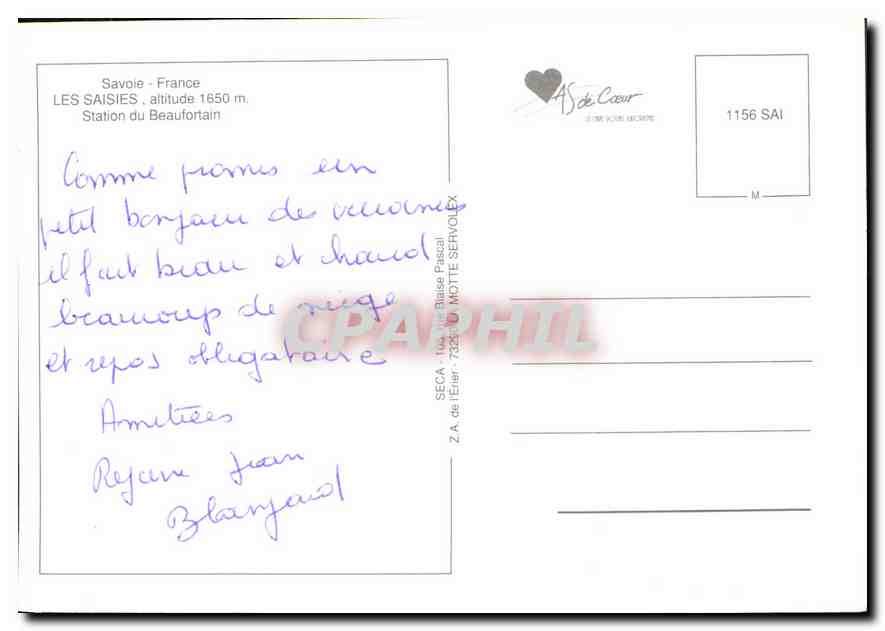 Savoie - France
LES SAISIES , altitude 1650 m.
Station du Beaufortain
Comme promis un
petit bonjour des vacances
il fait beau et chaud
beaucoup de neige
et repos obligatoire
Amitiées
Rejane Jean
SECA - Blaise Pascal
Z.A. de l'Érier - MOTTE SERVOLEX
As de Cœur
1156 SAI
M
CPAPHIL